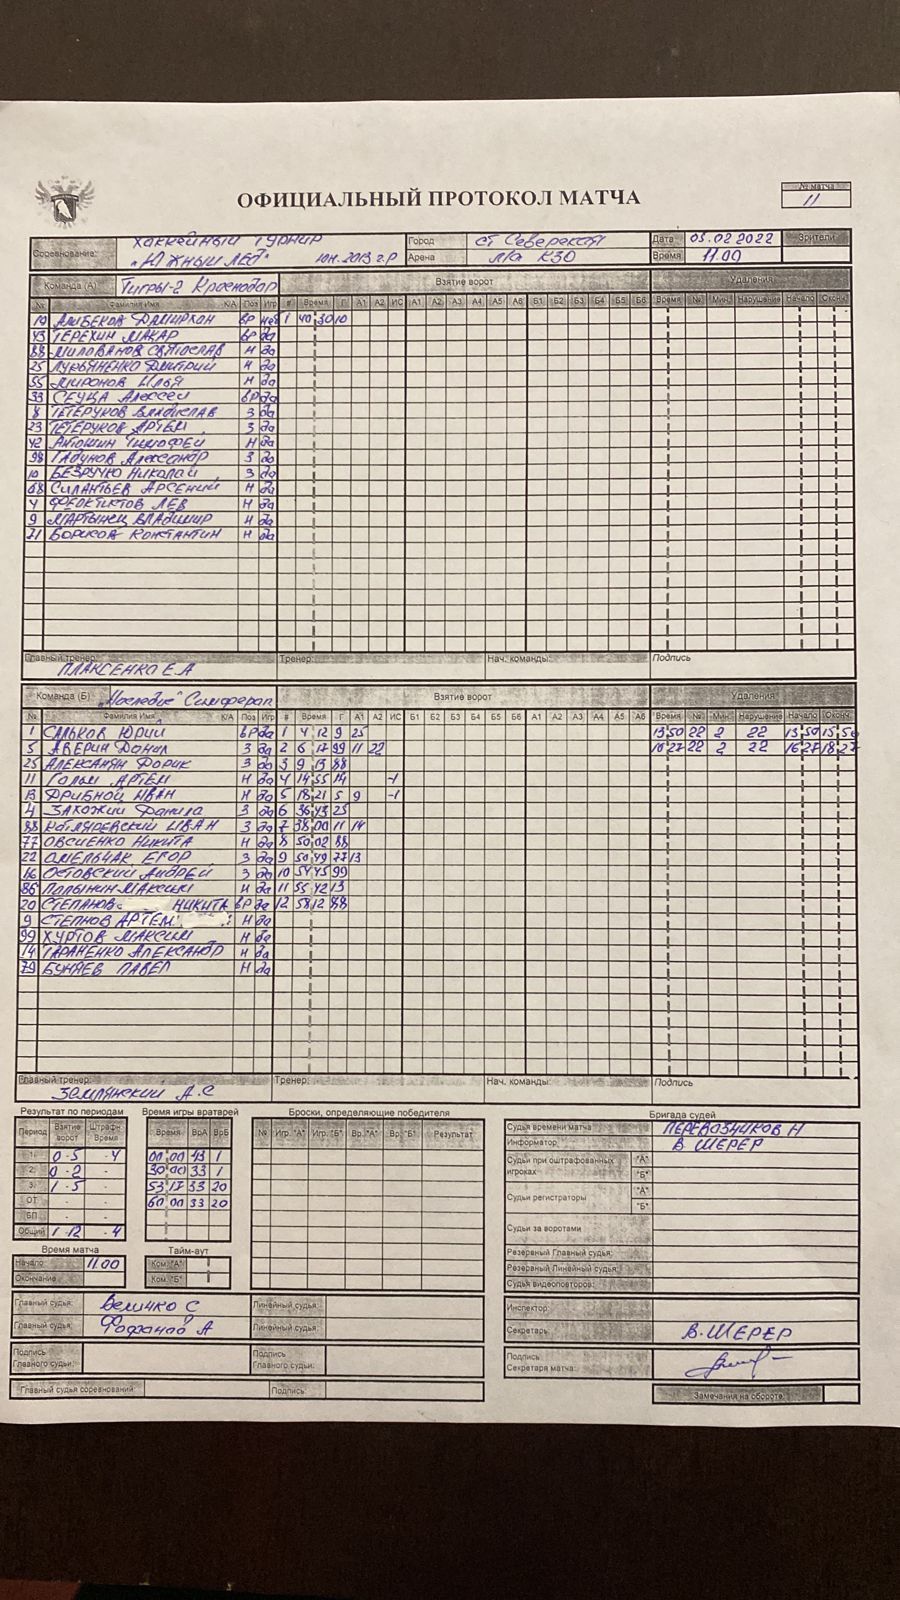 ОФИЦИАЛЬНЫЙ ПРОТОКОЛ МАТЧА
№ матча
11
Соревнование: Хоккейный турнир "Южный лёд" юн. 2013 г.р
Город ст Северская
Арена л/а КЗО
Дата 05.02 2022
Время 11.00
Зрители
Команда (А) Тигры-2 Краснодар Взятие ворот Удаления
№ Фамилия Имя К/А Поз Игр # Время Г А1 А2 ИС А1 А2 А3 А4 А5 А6 Б1 Б2 Б3 Б4 Б5 Б6 Время № Мин. Нарушение Начало Оконч.
19 Алибеков Дамирхан вр нет 1 40 30 10
43 Терехин Макар вр да
88 Милованов Святослав Н да
25 Лукьяненко Дмитрий Н да
55 Миронов Илья Н да
33 Сеуца Алексей вр да
8 Тетеруков Владислав З да
23 Тетеруков Артем З да
42 Антошин Тимофей Н да
98 Табунов Александр З да
10 Безручко Николай З да
68 Силантьев Арсений Н да
4 Феоктистов Лев Н да
9 Мартынец Владимир Н да
71 Борисов Константин Н да
Главный тренер: Плаксенко Е.А Тренер: Нач. команды: Подпись
Команда (Б) Взятие ворот Удаления
№ Фамилия Имя К/А Поз Игр # Время Г А1 А2 ИС Б1 Б2 Б3 Б4 Б5 Б6 А1 А2 А3 А4 А5 А6 Время № Мин. Нарушение Начало Оконч.
1 Сальков Юрий вр да 1 4 12 9 25 13 50 22 2 22 13 50 15 50
5 Аверин Данил З да 2 6 17 99 11 22 16 27 22 2 22 16 27 18 27
25 Алексанян Форик З да 3 9 13 88
11 Артем Н да 4 14 55 14 -1
13 Дрибной Иван Н да 5 18 21 5 9 -1
4 Захожий Данила З да 6 36 43 25
88 Котляревский Иван З да 7 38 00 11 14
77 Овсиенко Никита Н да 8 50 02 88
22 Омельчак Егор З да 9 50 49 77 13
16 Остовский Андрей З да 10 54 45 99
86 Полынин Максим Н да 11 55 42 13
20 Степанов Никита вр да 12 58 12 88
9 Степнов Артем Н да
99 Хуртов Максим Н да
14 Тараненко Александр Н да
79 Буняев Павел Н да
Главный тренер: Землянский А.С Тренер: Нач. команды: Подпись
Результат по периодам Время игры вратарей Броски, определяющие победителя Бригада судей
Период Взятие ворот Штрафн. Время
1. 0 - 5 - 4
2. 0 - 2 -
3. 1 - 5 -
ОТ - -
БП - -
Общий 1 12 - 4
Время ВрА ВрБ
00 00 43 1
30 00 33 1
53 17 33 20
60 00 33 20
№ Игр. "А" Игр. "Б" Вр. "А" Вр. "Б" Результат
Судья времени матча Перевозников Н
Информатор В Шерер
Судьи при оштрафованных игроках "А" "Б"
Судьи регистраторы "А" "Б"
Судьи за воротами
Резервный Главный судья:
Резервный Линейный судья:
Судья видеоповторов:
Время матча
Начало 11.00
Окончание
Тайм-аут
Ком. "А"
Ком. "Б"
Главный судья: Величко С Линейный судья: Инспектор:
Главный судья: Фофанов А Линейный судья: Секретарь В. Шерер
Подпись Главного судьи: Подпись Главного судьи: Подпись Секретаря матча:
Главный судья соревнований Подпись: Замечания на обороте